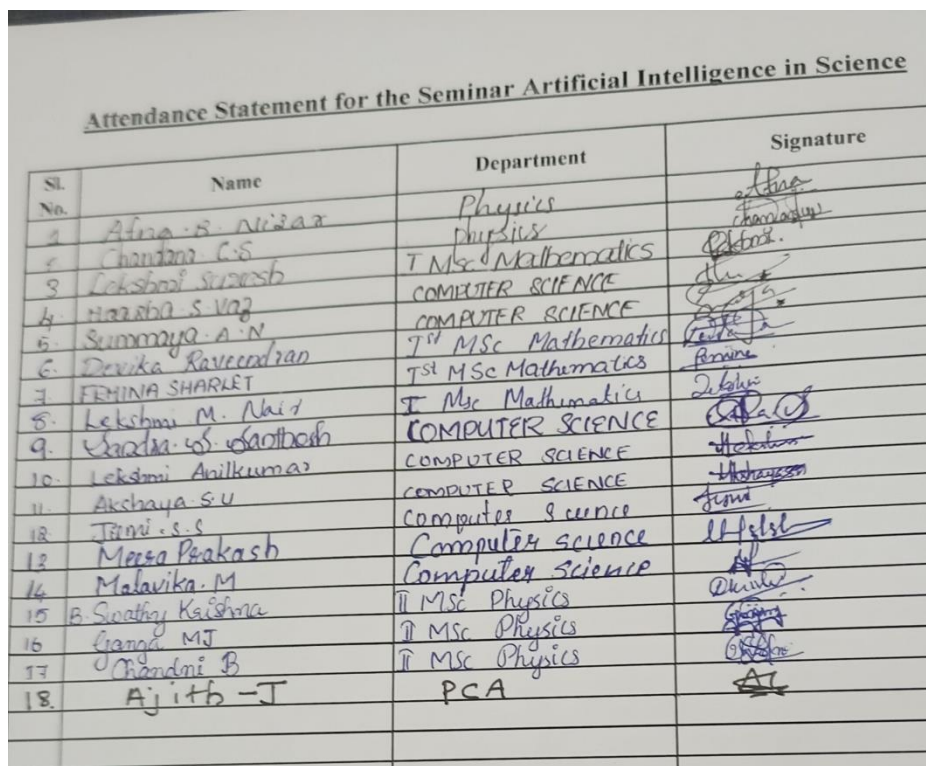 Attendance Statement for the Seminar Artificial Intelligence in Science
Sl. No. Name Department Signature
1 Afna. B. Nizar Physics Afna
2 Chandana C.S Physics
3 Lekshmi Suresh I MSc Mathematics
4. Harsha. S. Vaz COMPUTER SCIENCE
5. Summaya. A. N COMPUTER SCIENCE
6. Devika Raveendran Ist MSc Mathematics
7. FEMINA SHARLET Ist MSc Mathematics Femina
8. Lekshmi M. Nair I Msc Mathematics
9. Sandra. S. Santhosh COMPUTER SCIENCE
10. Lekshmi Anilkumar COMPUTER SCIENCE
11. Akshaya. S. U COMPUTER SCIENCE
12. S.S Computer Science
13 Meera Prakash Computer science
14 Malavika. M Computer Science
15 B. Swathy Krishna II MSc Physics
16 Ganga MJ II MSc Physics
17 Chandni B II MSc Physics
18. Ajith - J PCA